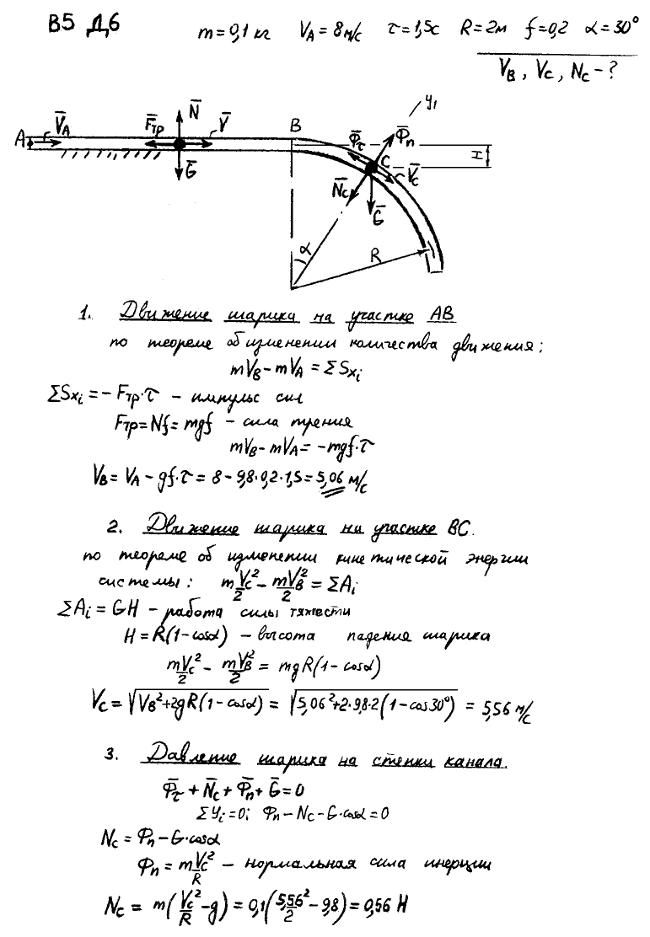 В5 Д6 m=0,1 кг V_A=8м/с τ=1,5с R=2м f=0,2 α=30°
V_B, V_C, N_C - ?
A V̄_A F̄тр N̄ V̄ Ḡ B Φ̄_τ Φ̄_n y₁ C V̄_C N̄_C Ḡ H α R
1. Движение шарика на участке АВ
по теореме об изменении количества движения:
mV_B - mV_A = ΣSx_i
ΣSx_i = -Fтр·τ - импульс сил
Fтр=Nf=mgf - сила трения
mV_B - mV_A = -mgf·τ
V_B = V_A - gf·τ = 8 - 9,8·0,2·1,5 = 5,06 м/с
2. Движение шарика на участке ВС.
по теореме об изменении кинетической энергии
системы: mV_C²/2 - mV_B²/2 = ΣA_i
ΣA_i = GH - работа силы тяжести
H = R(1-cosα) - высота падения шарика
mV_C²/2 - mV_B²/2 = mgR(1-cosα)
V_C = √(V_B²+2gR(1-cosα)) = √(5,06²+2·9,8·2(1-cos30°)) = 5,56 м/с
3. Давление шарика на стенки канала.
Φ̄_τ + N̄_C + Φ̄_n + Ḡ = 0
ΣY_i=0; Φ_n - N_C - G·cosα=0
N_C = Φ_n - G·cosα
Φ_n = mV_C²/R - нормальная сила инерции
N_C = m(V_C²/R - g) = 0,1(5,56²/2 - 9,8) = 0,56 Н